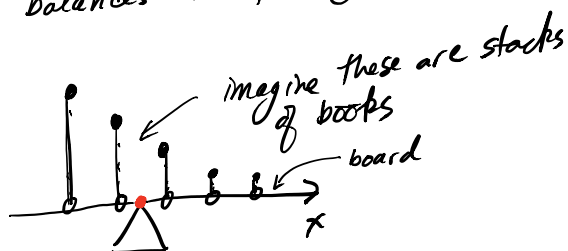 balances
imagine these are stacks
of books
board
x